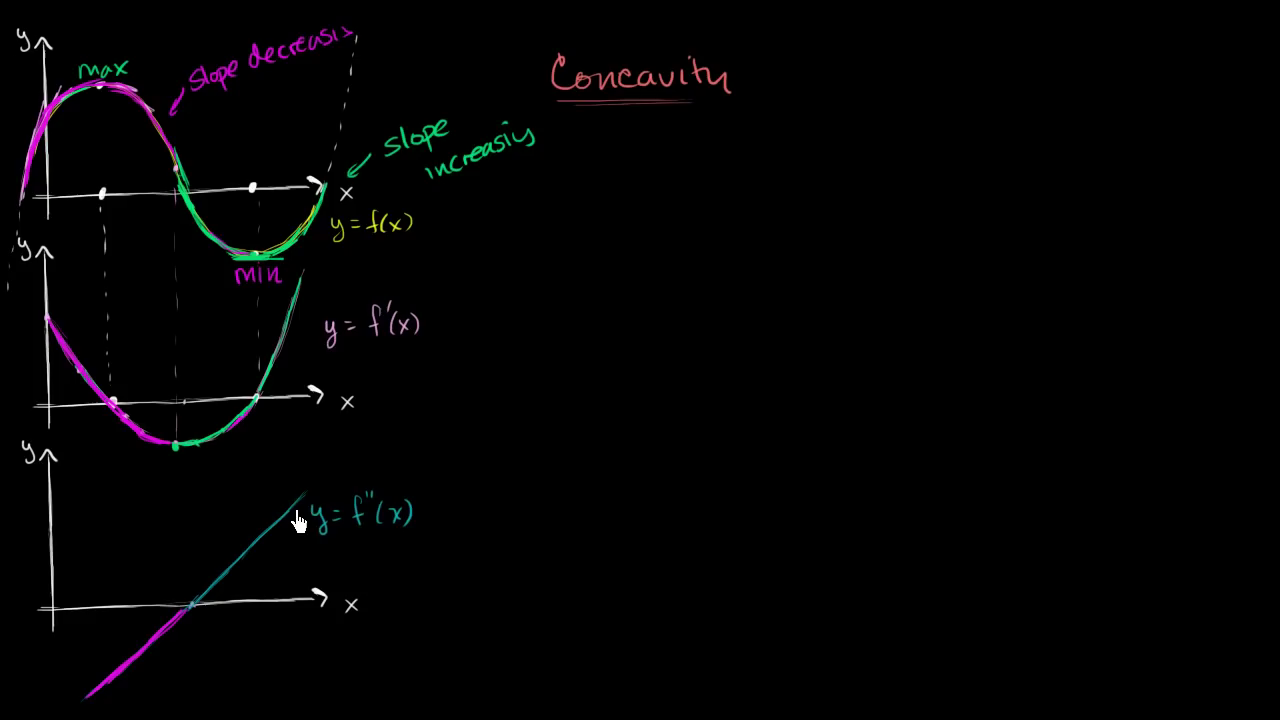 Concavity
y
max
slope decreasin
slope
increasing
x
y = f(x)
min
y
y = f'(x)
x
y
y = f''(x)
x